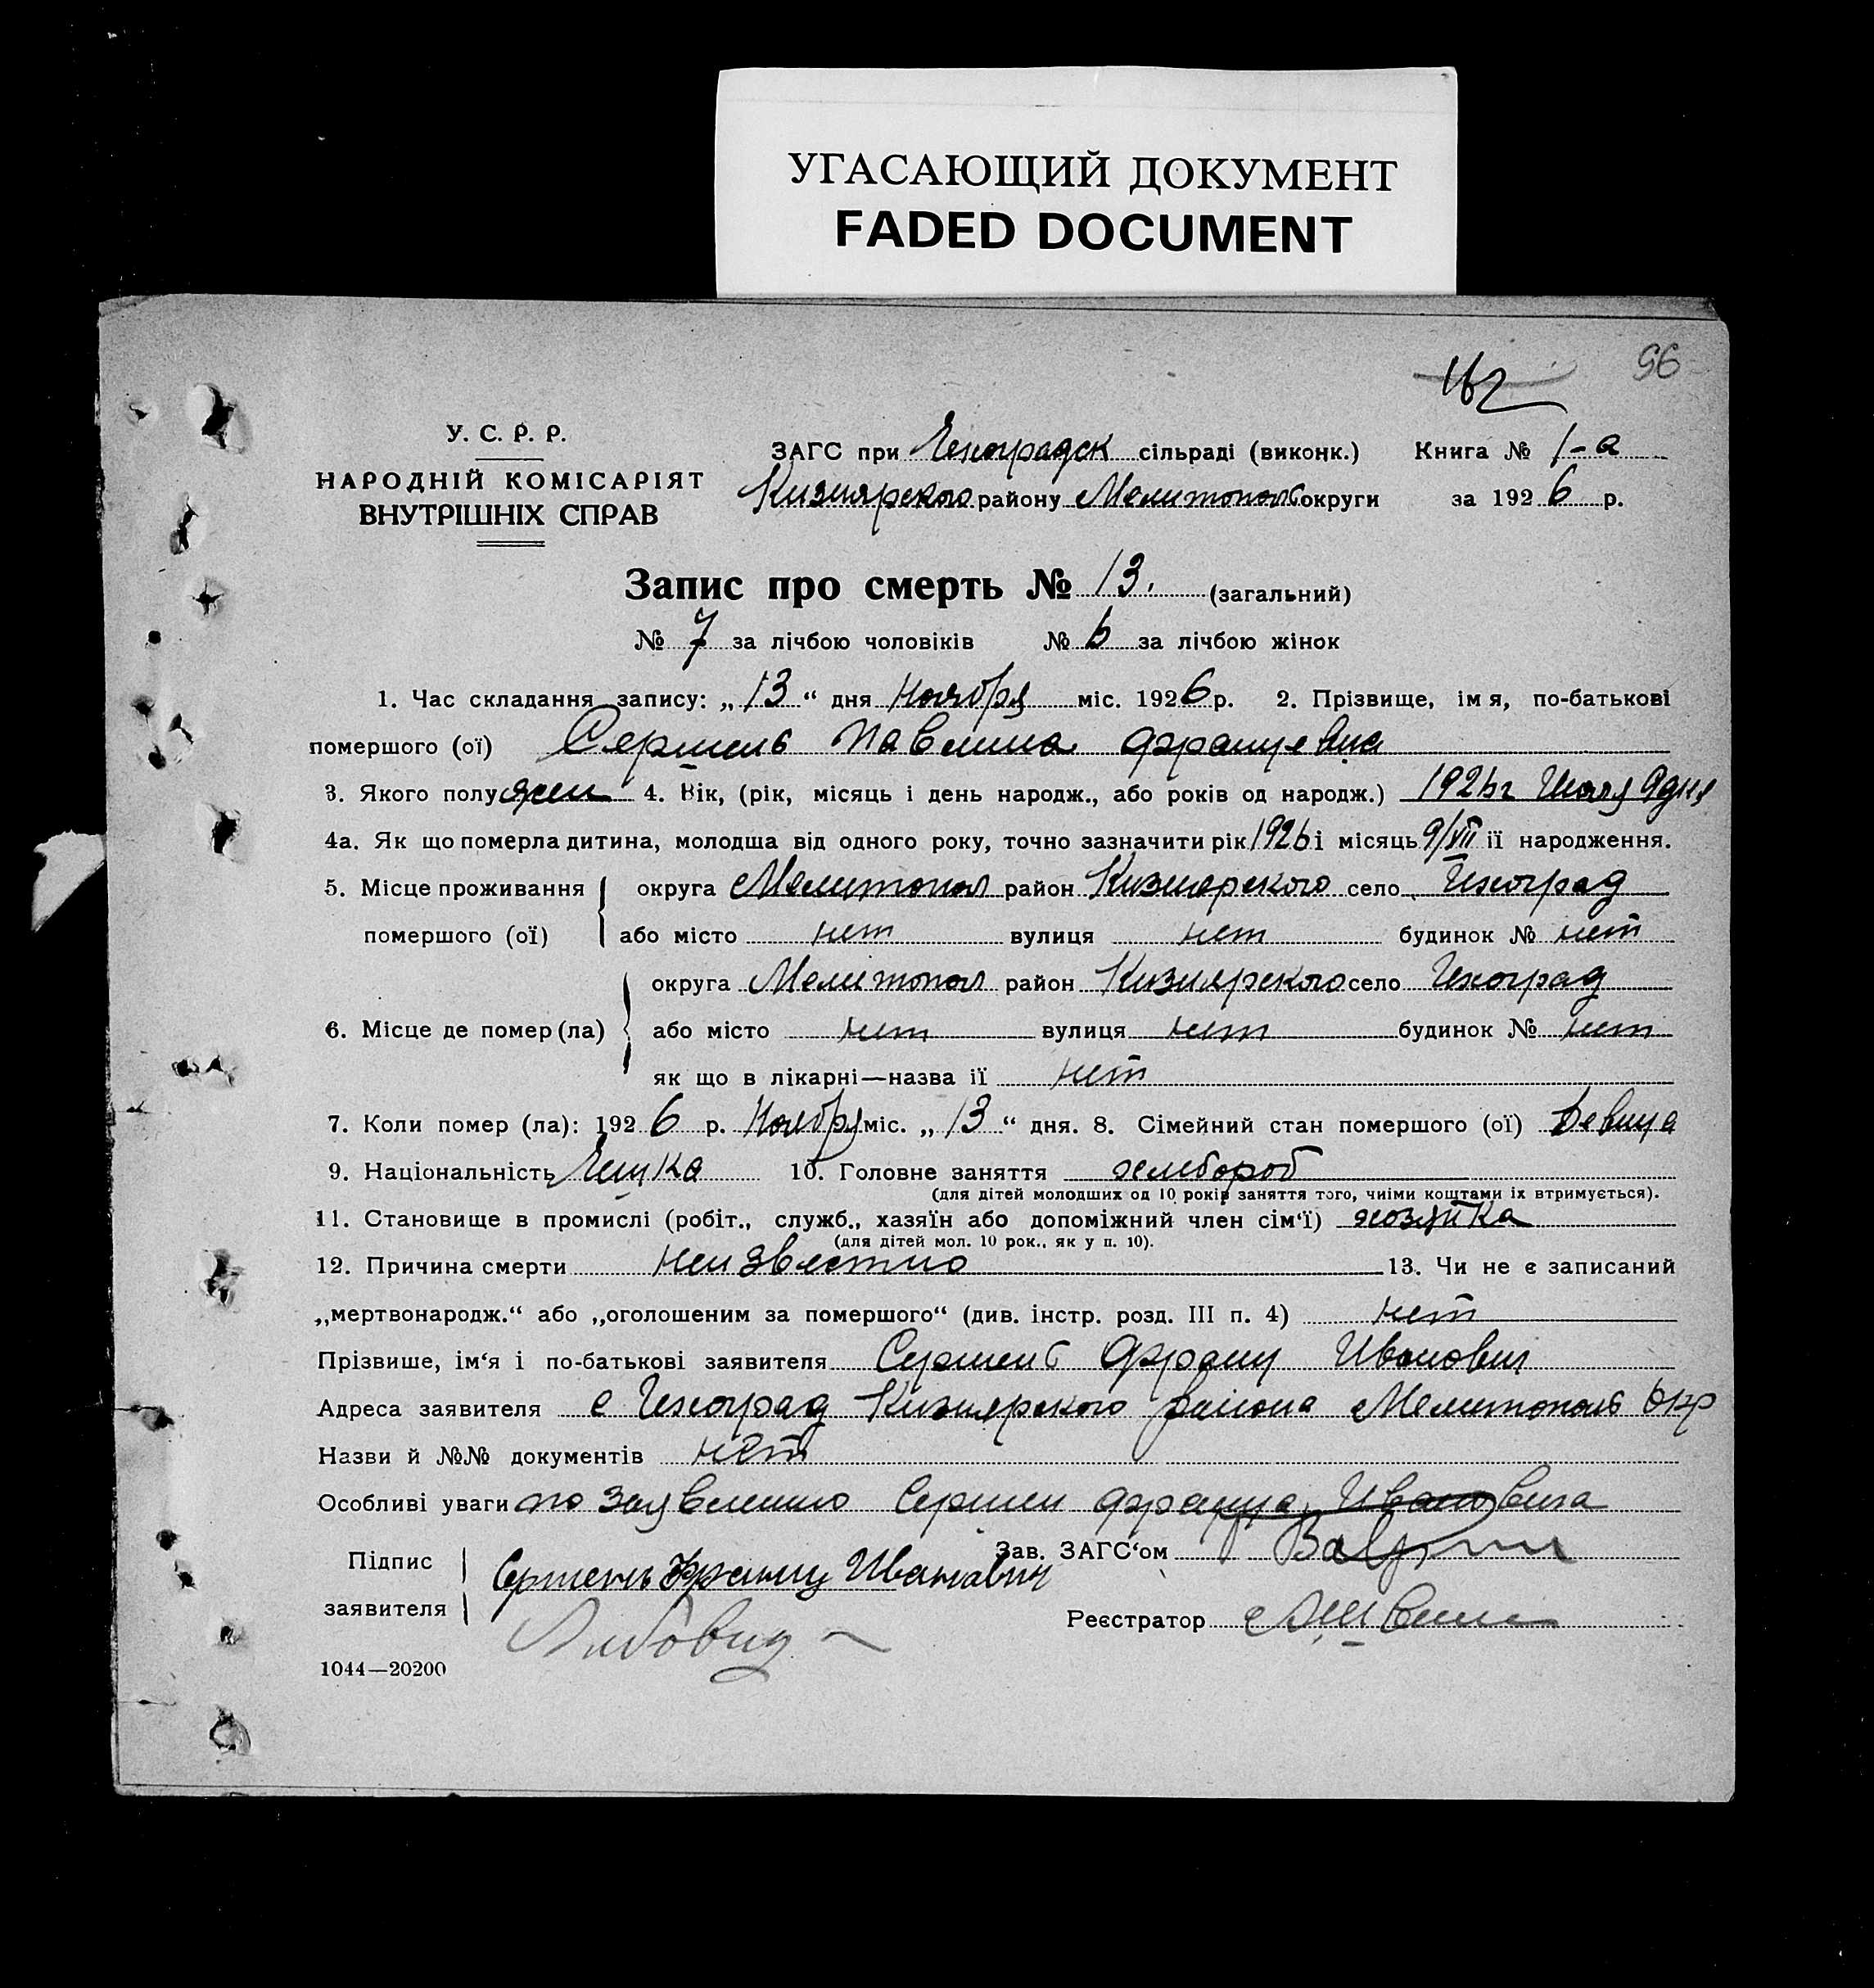 УГАСАЮЩИЙ ДОКУМЕНТ
FADED DOCUMENT
162 96
У. С. Р. Р.
НАРОДНІЙ КОМІСАРІЯТ
ВНУТРІШНІХ СПРАВ
ЗАГС при Чехоградск сільраді (виконк.) Книга № 1-а
Кизиярского району Мелитополь округи за 1926 р.
Запис про смерть № 13. (загальний)
№ 7 за лічбою чоловіків № 6 за лічбою жінок
1. Час складання запису: „13“ дня Ноября міс. 1926 р. 2. Прізвище, імя, по-батькові
помершого (ої) Сершень Павлина Францевна
3. Якого полу жен 4. Вік, (рік, місяць і день народж., або років од народж.) 1926г Июля 9 дня
4а. Як що померла дитина, молодша від одного року, точно зазначити рік 1926 і місяць 9/VII її народження.
5. Місце проживання округа Мелитопол район Кизиярского село Чехоград
помершого (ої) або місто нет вулиця нет будинок № нет
округа Мелитопол район Кизиярского село Чехоград
6. Місце де помер (ла) або місто нет вулиця нет будинок № нет
як що в лікарні—назва ії нет
7. Коли помер (ла): 1926 р. Ноября міс. „13“ дня. 8. Сімейний стан помершого (ої) Девица
9. Національність Чешка 10. Головне заняття хлебороб
(для дітей молодших од 10 років заняття того, чиїми коштами їх втримується).
11. Становище в промислі (робіт., служб., хазяїн або допоміжний член сім‘ї) хозяйка
(для дітей мол. 10 рок., як у п. 10).
12. Причина смерти неизвестно 13. Чи не є записаний
„мертвонародж.“ або „оголошеним за помершого“ (див. інстр. розд. III п. 4) нет
Прізвише, ім‘я і по-батькові заявителя Сершень Франц Иванович
Адреса заявителя с Чехоград Кизиярского района Мелитополь окр
Назви й №№ документів нет
Особливі уваги по заявлению Сершен Франца Ивановича
Підпис Зав. ЗАГС‘ом
заявителя Сершень Франц Иванавич
Реєстратор
1044—20200